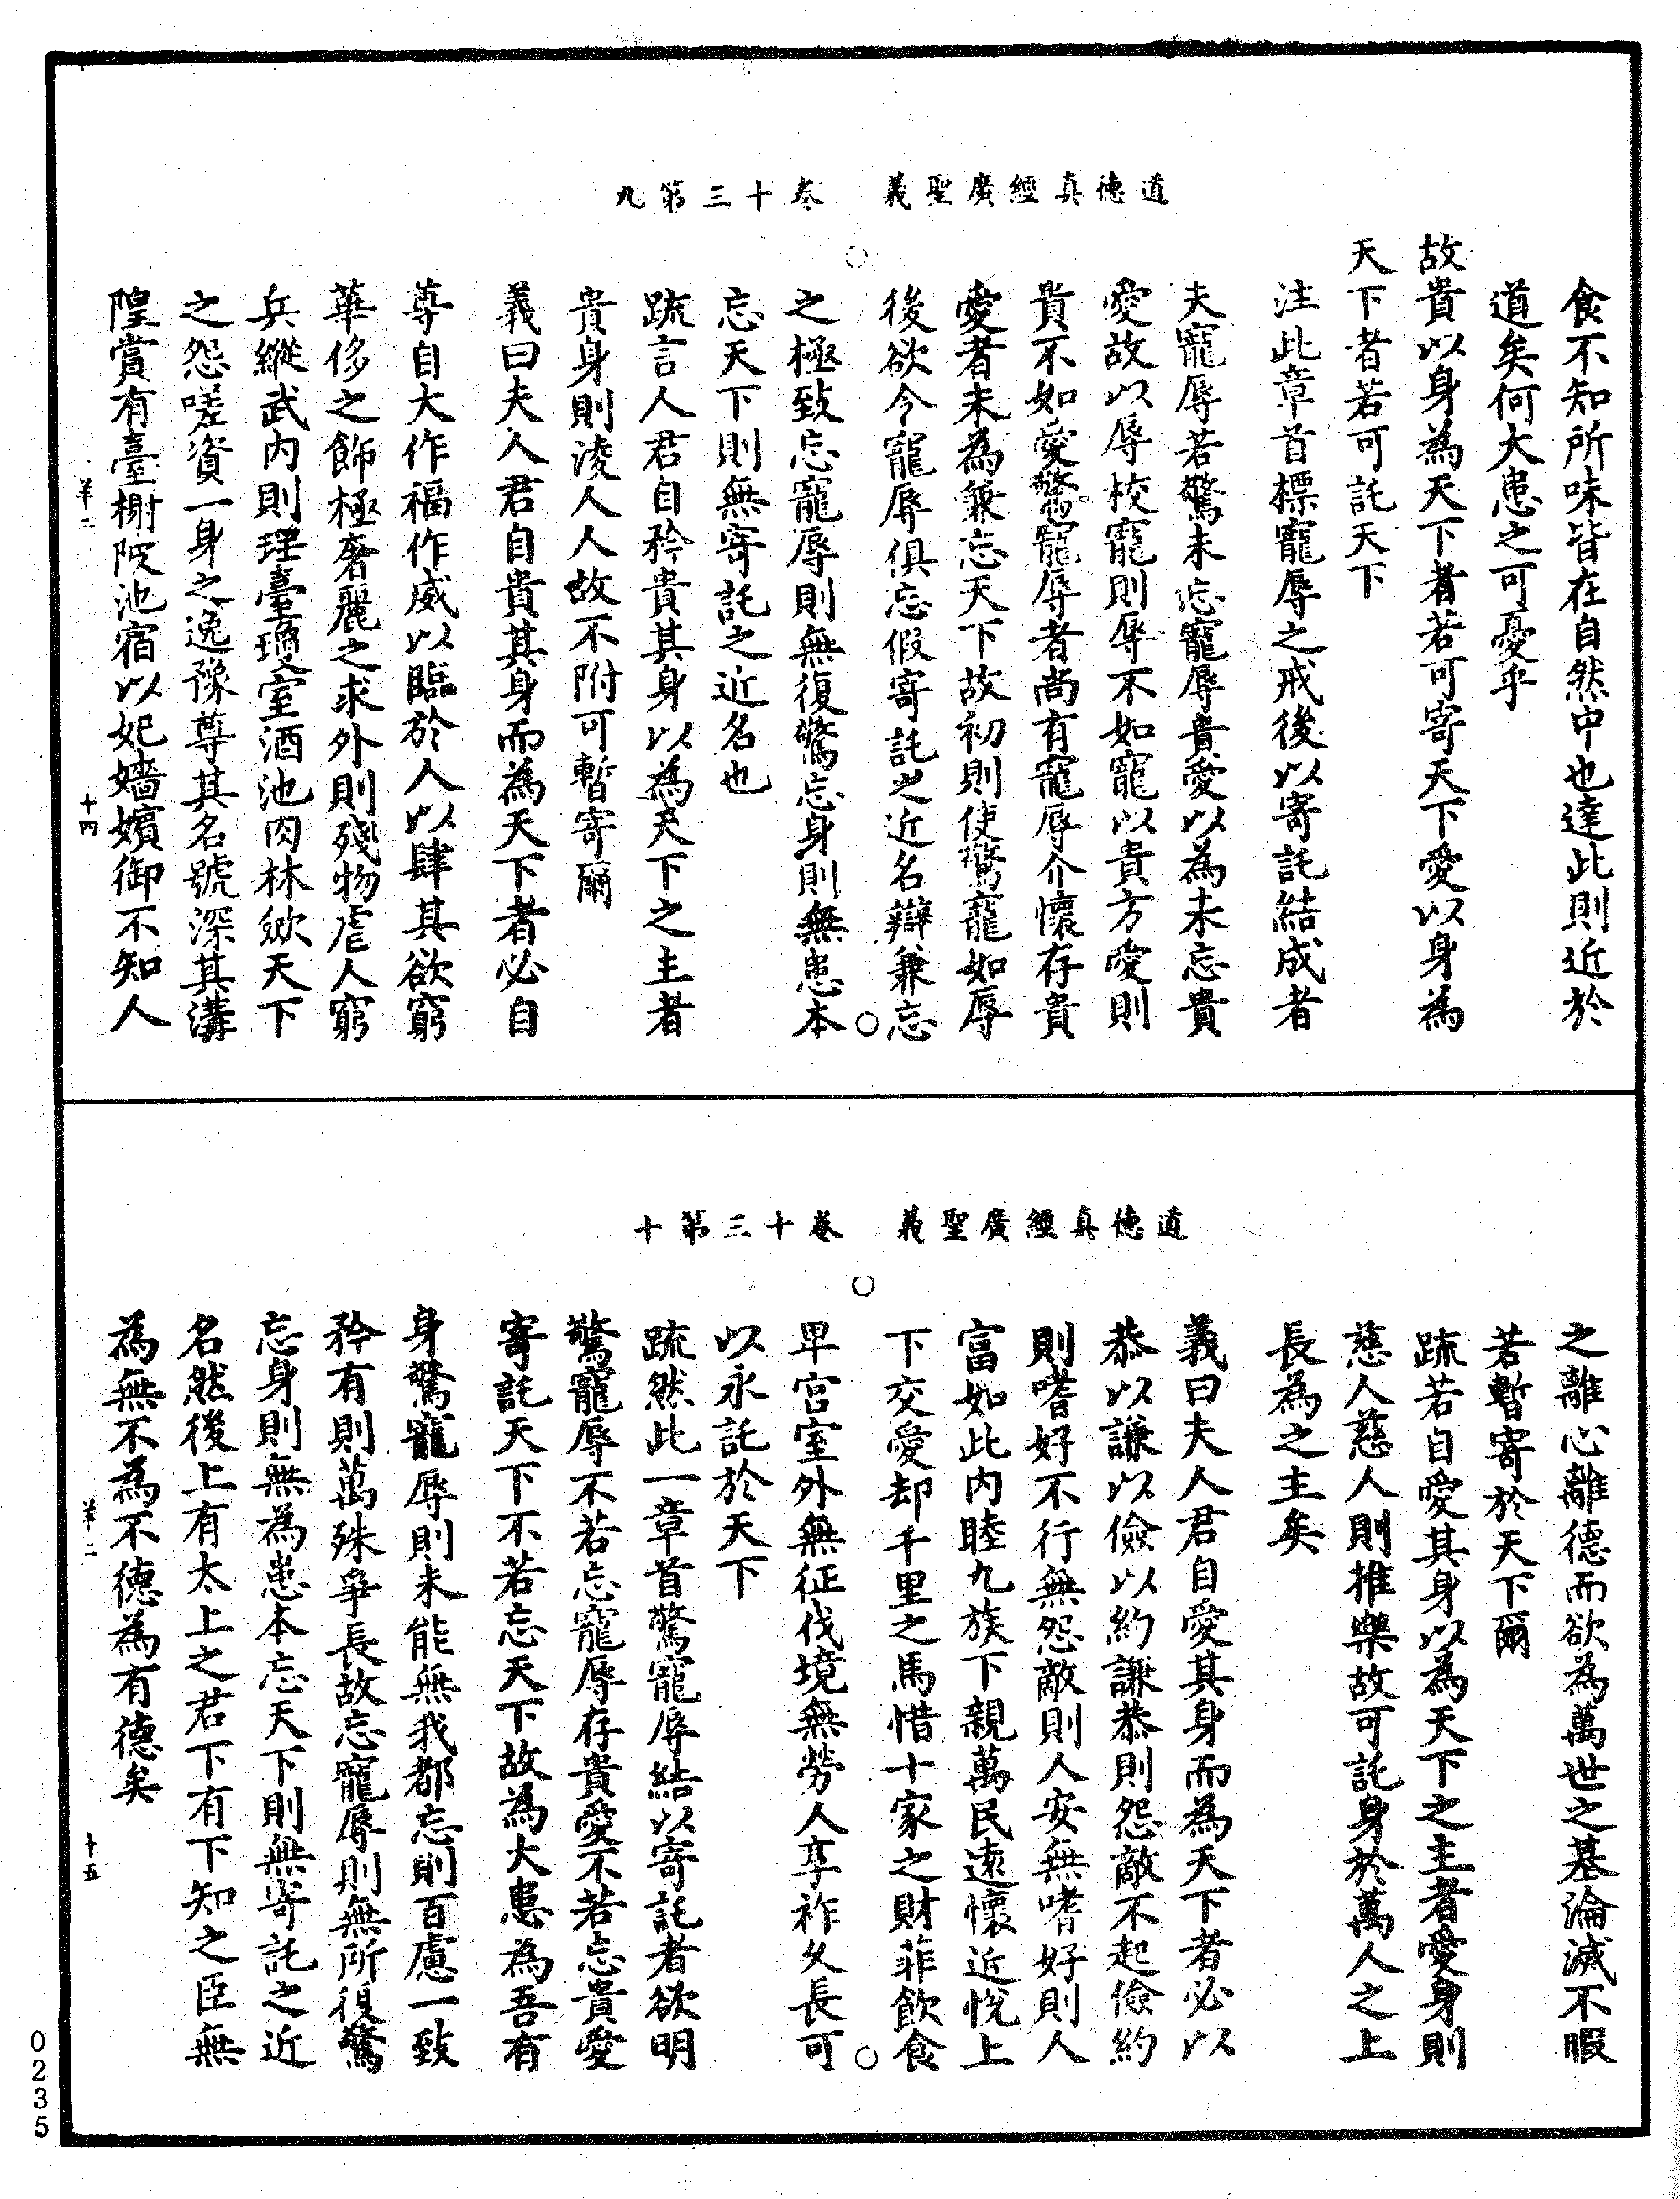 道德真經廣聖義　卷十三第九
食不知所味皆在自然中也達此則近於
道矣何大患之可憂乎
故貴以身為天下者若可寄天下愛以身為
天下者若可託天下
注此章首標寵辱之戒後以寄託結成者
夫寵辱若驚未忘寵辱貴愛以為未忘貴
愛故以辱校寵則辱不如寵以貴方愛則
貴不如愛驚寵辱者尚有寵辱介懷存貴
愛者未為兼忘天下故初則使驚寵如辱
後欲令寵辱俱忘假寄託之近名辯兼忘
之極致忘寵辱則無復驚忘身則無患本
忘天下則無寄託之近名也
疏言人君自矜貴其身以為天下之主者
貴身則淩人人故不附可暫寄爾
義曰夫人君自貴其身而為天下者必自
尊自大作福作威以臨於人以肆其欲窮
華侈之飾極奢麗之求外則殘物虐人窮
兵縱武內則瑤臺瓊室酒池肉林斂天下
之怨嗟資一身之逸豫尊其名號深其溝
隍賞有臺榭陂池宿以妃嬙嬪御不知人
羊二　十四
道德真經廣聖義　卷十三第十
之離心離德而欲為萬世之基淪滅不暇
若暫寄於天下爾
疏若自愛其身以為天下之主者愛身則
慈人慈人則推樂故可託身於萬人之上
長為之主矣
義曰夫人君自愛其身而為天下者必以
恭以謙以儉以約謙恭則怨敵不起儉約
則嗜好不行無怨敵則人安無嗜好則人
富如此內睦九族下親萬民遠懷近悅上
下交愛却千里之馬惜十家之財菲飲食
卑宮室外無征伐境無勞人享祚久長可
以永託於天下
疏然此一章首驚寵辱結以寄託者欲明
驚寵辱不若忘寵辱存貴愛不若忘貴愛
寄託天下不若忘天下故為大患為吾有
身驚寵辱則未能無我都忘則百慮一致
矜有則萬殊爭長故忘寵辱則無所復驚
忘身則無為患本忘天下則無寄託之近
名然後上有太上之君下有下知之臣無
為無不為不德為有德矣
羊二　十五
0235